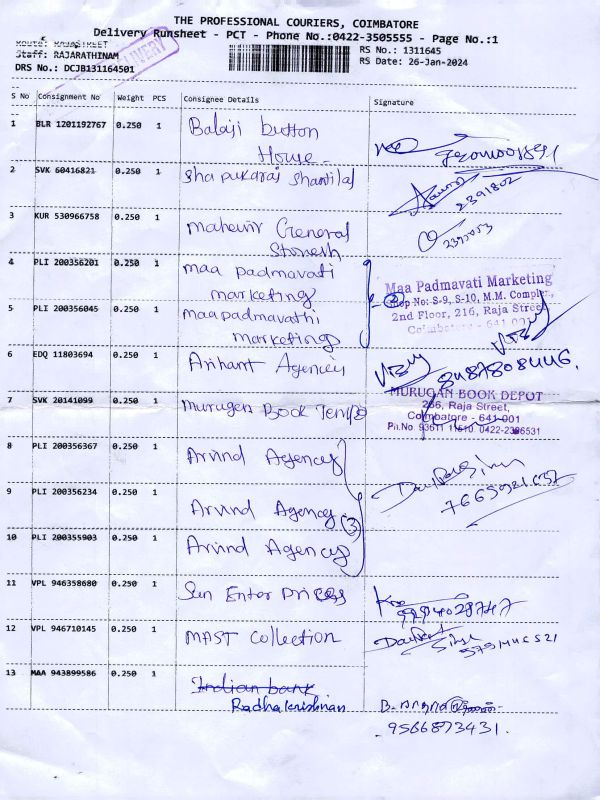 THE PROFESSIONAL COURIERS, COIMBATORE
Delivery Runsheet - PCT - Phone No.:0422-3505555 - Page No.:1
Route: RAJASTREET
Staff: RAJARATHINAM
DRS No.: DCJB131164501
DELIVERY
RS No.: 1311645
RS Date: 26-Jan-2024
S No Consignment No Weight PCS Consignee Details Signature
1 BLR 1201192767 0.250 1 Balaji button
House
2 SVK 60416821 0.250 1 Sha pukaraj Shantilal
2391802
3 KUR 530966758 0.250 1 Mahevir General
Storesh
4 PLI 200356201 0.250 1 maa padmavati
marketing
5 PLI 200356045 0.250 1 maa padmavathi
marketing
Maa Padmavati Marketing
Shop No: S-9, S-10, M.M. Complex,
2nd Floor, 216, Raja Street
Coimbatore - 641 001
6 EDQ 11803694 0.250 1 Arihant Agency
8487808446.
7 SVK 20141099 0.250 1 murugen Book
MURUGAN BOOK DEPOT
266, Raja Street,
Coimbatore - 641 001
8 PLI 200356367 0.250 1 Arvind Agency
9 PLI 200356234 0.250 1 Arvind Agency (3)
10 PLI 200355903 0.250 1 Arvind Agency
11 VPL 946358680 0.250 1 Sun Enter prices
12 VPL 946710145 0.250 1 MAST Collection
13 MAA 943899586 0.250 1 Indian bank
Radhakrishnan
9566873431.